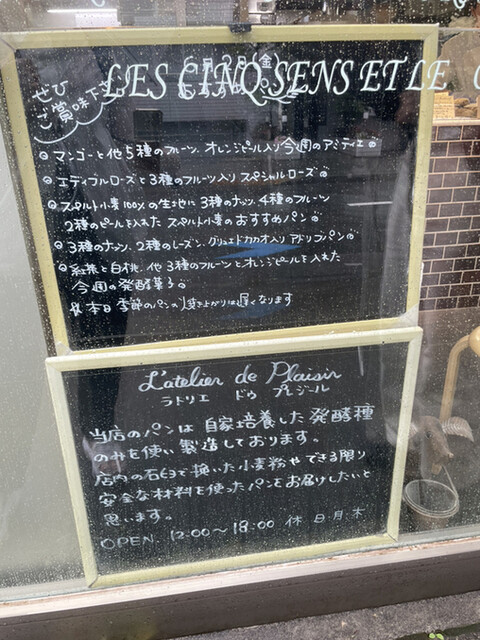 LES CINQ SENS ET LE
ぜひ
ご賞味下
◎マンゴーと他5種のフルーツ、オレンジピール入り今週のアミティエ
◎エディブルローズと3種のフルーツ入りスペシャルローズ
◎スペルト小麦100%の生地に3種のナッツ、4種のフルーツ
2種のピールを入れた スペルト小麦のおすすめパン
◎3種のナッツ、2種のレーズン、グリュエドカカオ入りアドリブパン
◎紅茶と白桃、他3種のフルーツとオレンジピールを入れた
今週の発酵菓子
本日 季節のパンの焼き上がりは遅くなります
L'atelier de Plaisir
ラトリエ ドゥ プレジール
当店のパンは 自家培養した発酵種
のみを使い製造しております。
店内の石臼で挽いた小麦粉やできる限り
安全な材料を使ったパンをお届けしたいと
思います。
OPEN. 12:00〜18:00 休 日.月.木